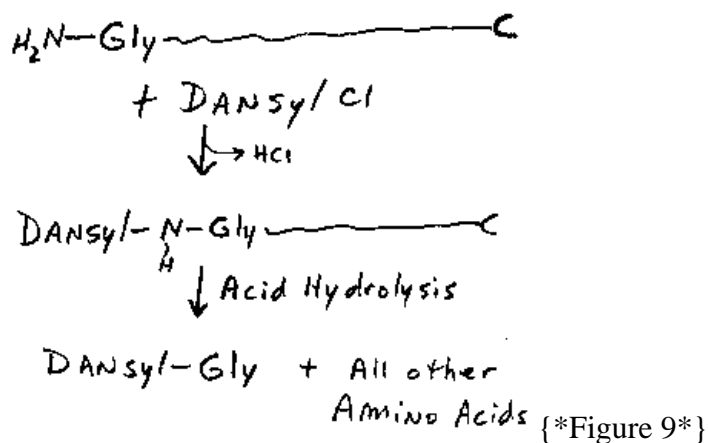 H₂N-Gly C
+ DANSyl Cl
→ HCl
DANSyl-N-Gly C
H
Acid Hydrolysis
DANSyl-Gly + All other
Amino Acids {*Figure 9*}